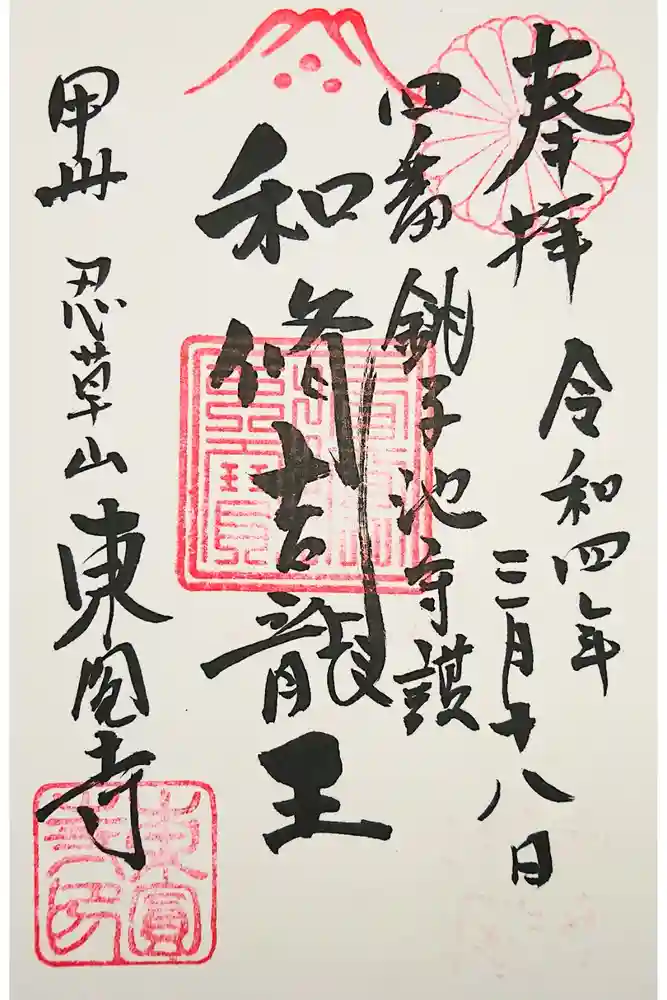 奉拝
令和四年
三月十八日
四番 銚子池守護
和脩吉龍王
甲州 忍草山 東圓寺